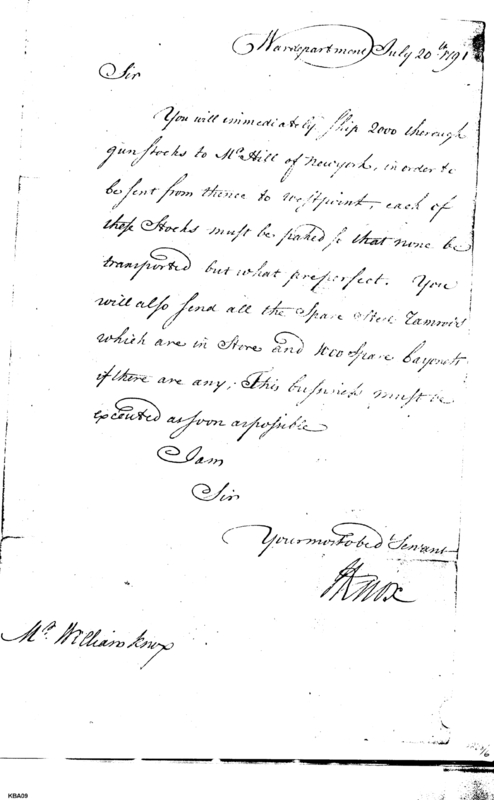 Wardepartment July 20th 1791
Sir
You will immediately ship 2000 thorough
gun stocks to Mr Hill of Newyork, in order to
be sent from thence to westpoint, each of
those Stocks must be paked so that none be
transported but what pr perfect. You
will also send all the Spare Steel Ramrods
which are in Store and 1000 spare bayonets
if there are any, This business must be
executed as soon as possible
I am
Sir
Your most obed Servant
HKnox
Mr William Knox
KBA09